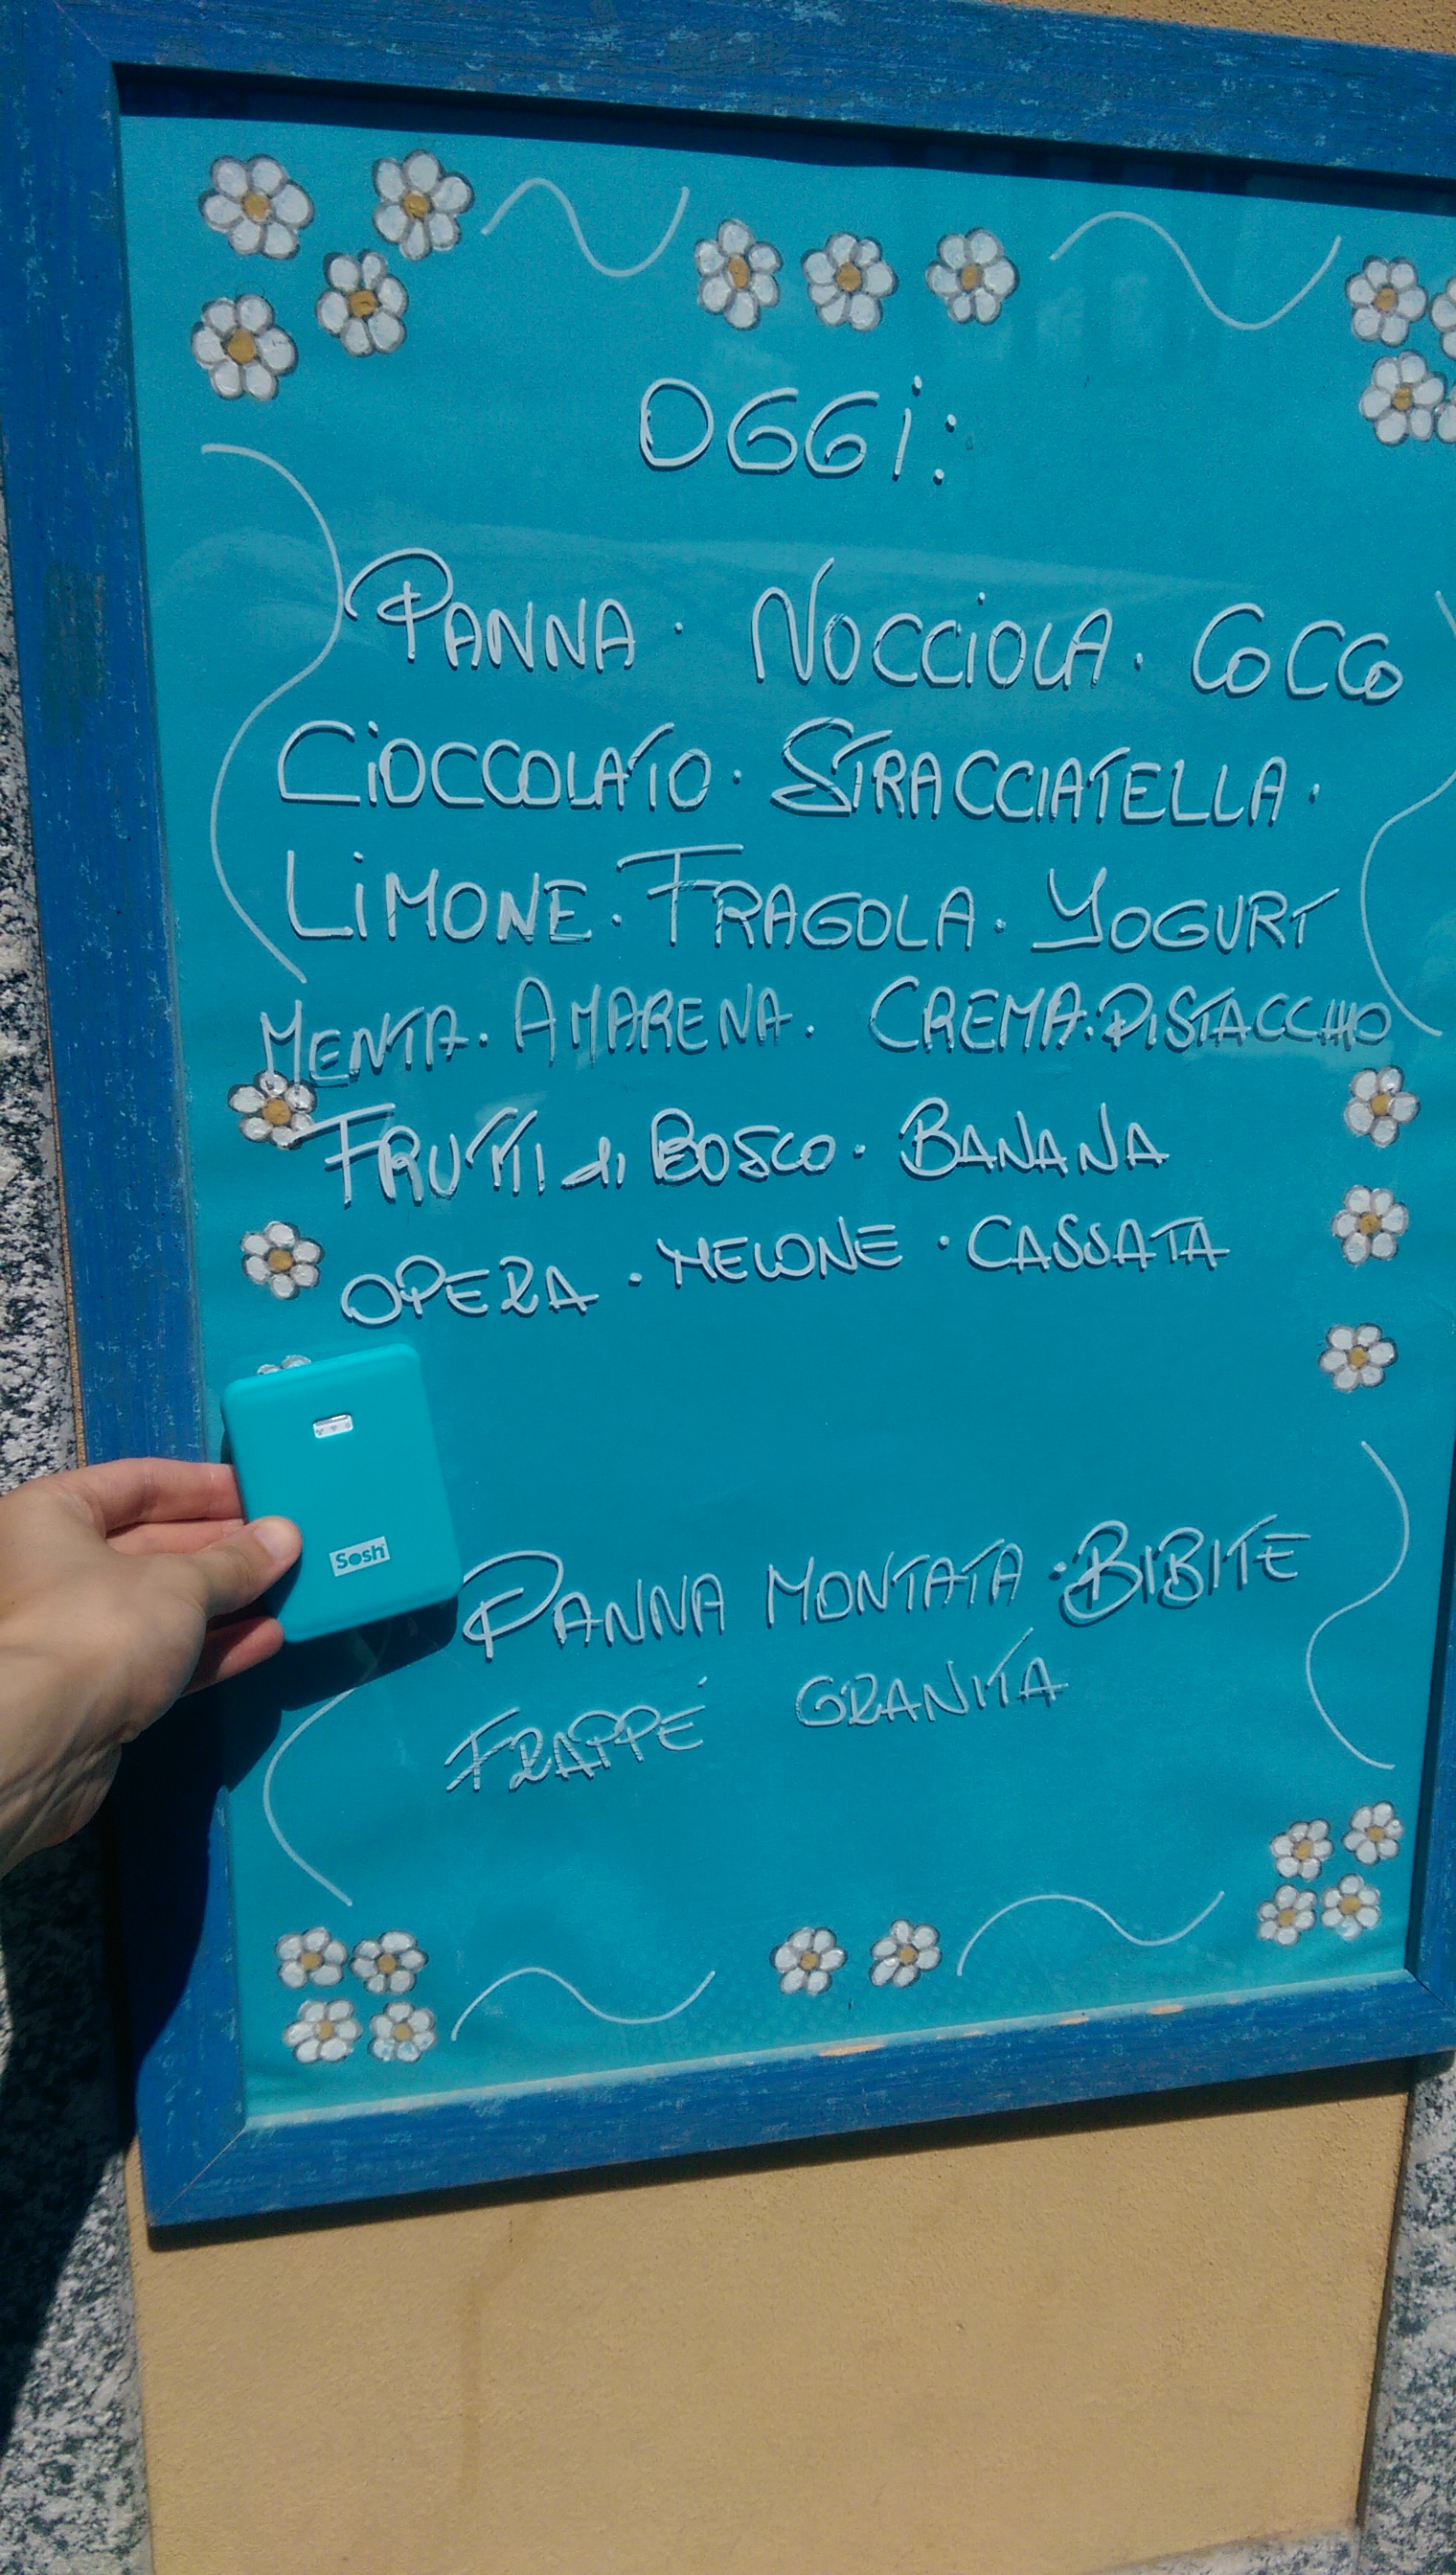 OGGI:
PANNA · NOCCIOLA · COCCO
CIOCCOLATO · STRACCIATELLA ·
LIMONE · FRAGOLA · YOGURT
MENTA · AMARENA · CREMA · PISTACCHIO
FRUTTI di BOSCO · BANANA
OPERA · MELONE · CASSATA
Sosh
PANNA MONTATA · BIBITE
FRAPPÉ GRANITA